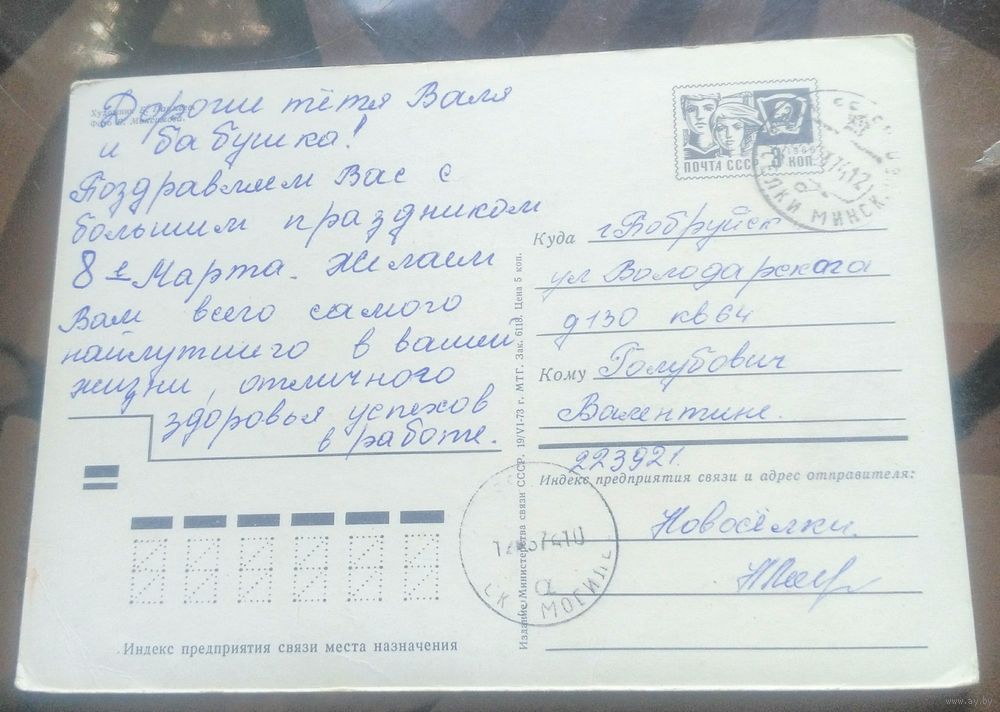 Дороги тётя Валя
и бабушка!
Поздравляем Вас с
большим праздником
8 е Марта. Желаем
Вам всего самого
найлутшего в вашей
жизни, отличного
здоровья успехов
в работе.
ПОЧТА СССР
КОП.
МИНСК.
Куда г. Бобруйск
ул Володарского
д 130 кв 64
Кому Голубович
Валентине.
223921.
Индекс предприятия связи и адрес отправителя:
Новосёлки.
Издание Министерства связи СССР. 19/VI-73 г. МТГ. Зак. 6118. Цена 5 коп.
МОГИЛ
Индекс предприятия связи места назначения
www.ay.by